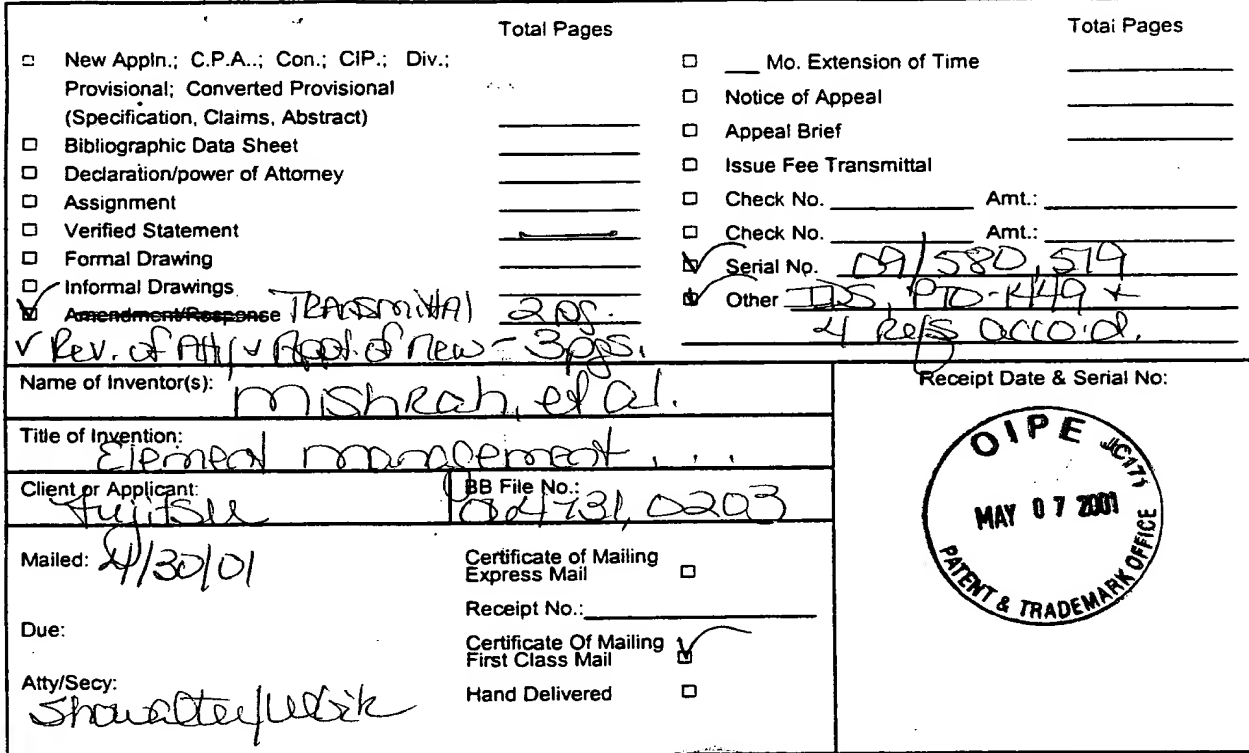 Total Pages
New Appln.; C.P.A..; Con.; CIP.; Div.;
Provisional; Converted Provisional
(Specification, Claims, Abstract)
Bibliographic Data Sheet
Declaration/power of Attorney
Assignment
Verified Statement
Formal Drawing
Informal Drawings
Amendment/Response Transmittal 2 pg.
Rev. of Atty Appt. of new - 3pgs.
Total Pages
Mo. Extension of Time
Notice of Appeal
Appeal Brief
Issue Fee Transmittal
Check No. Amt.:
Check No. Amt.:
Serial No. 09/580,579
Other IDS, PTO-1449 +
4 Refs
Name of Inventor(s): Mishrah, et al.
Title of Invention: Element management ...
Client or Applicant: Fujitsu
BB File No.: 064731.0203
Mailed: 4/30/01
Due:
Atty/Secy: Showalter/
Certificate of Mailing
Express Mail
Receipt No.:
Certificate Of Mailing
First Class Mail
Hand Delivered
Receipt Date & Serial No:
OIPE JC171
MAY 07 2001
PATENT & TRADEMARK OFFICE